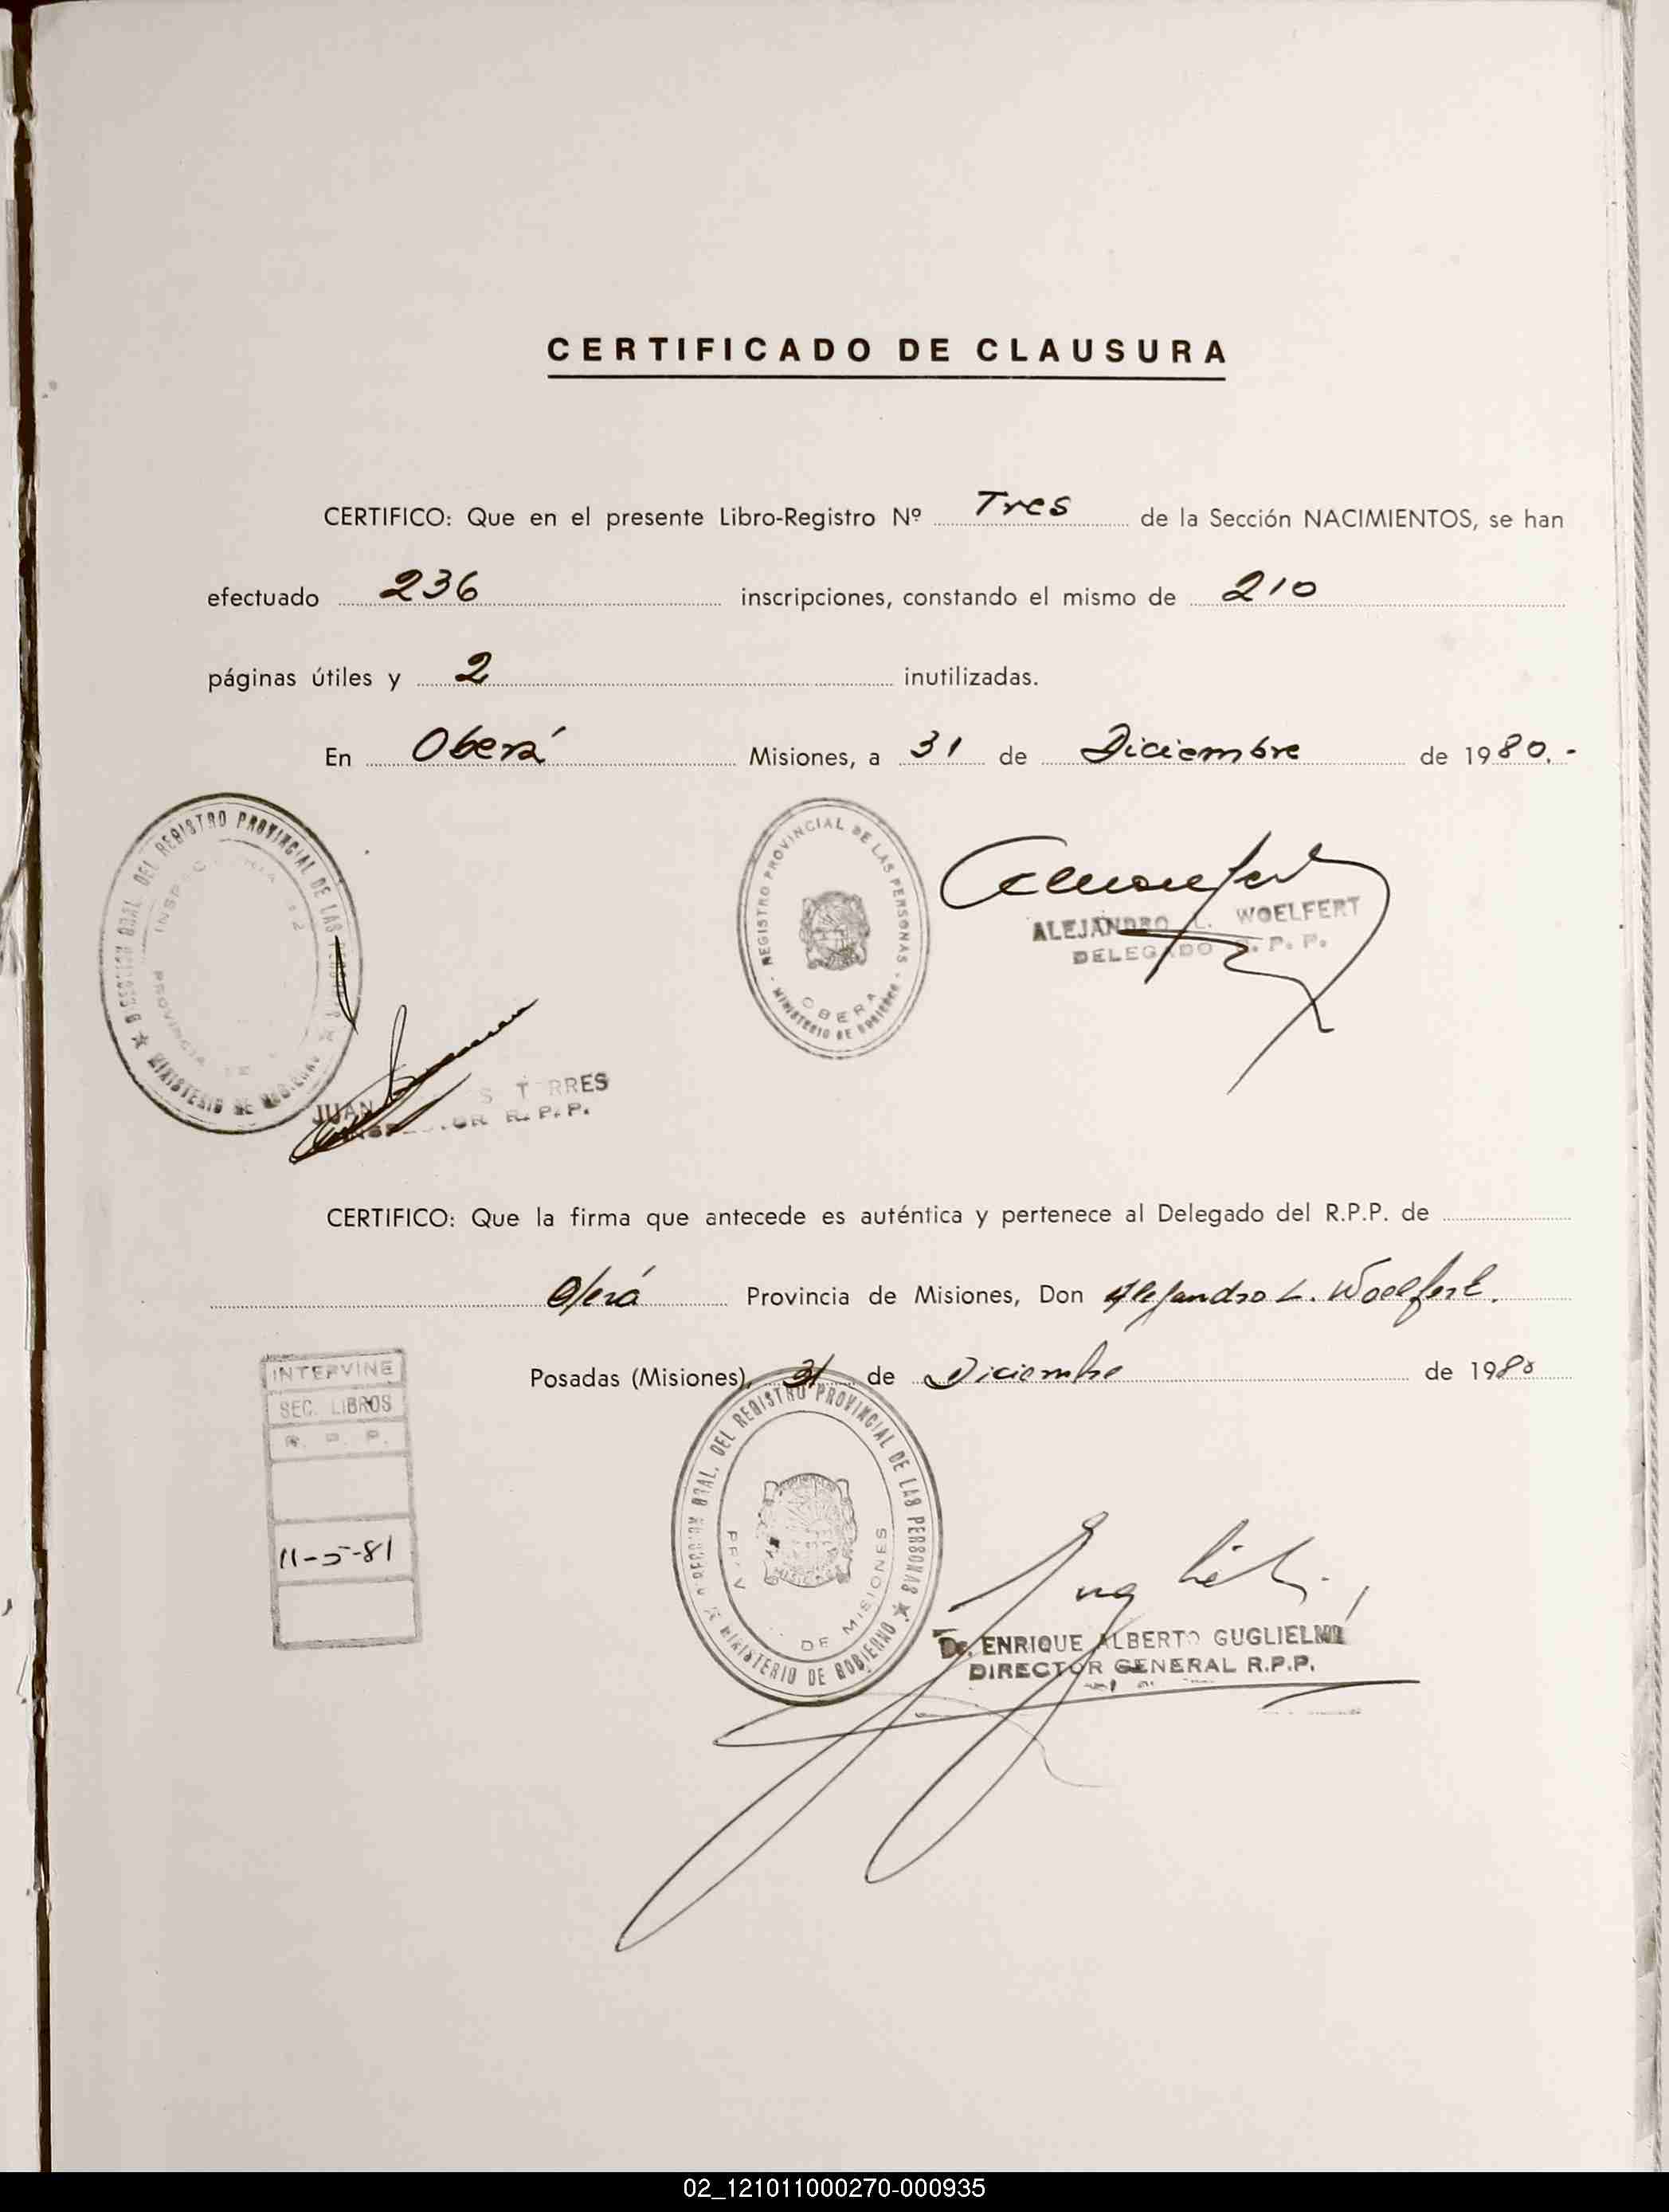 CERTIFICADO DE CLAUSURA
CERTIFICO: Que en el presente Libro-Registro Nº Tres de la Sección NACIMIENTOS, se han
efectuado 236 inscripciones, constando el mismo de 210
páginas útiles y 2 inutilizadas.
En Oberá Misiones, a 31 de Diciembre de 1980.-
DIRECCION GRAL. DEL REGISTRO PROVINCIAL DE LAS PERSONAS
MINISTERIO DE GOBIERNO
PROVINCIA DE
REGISTRO PROVINCIAL DE LAS PERSONAS
MINISTERIO DE GOBIERNO
OBERA
ALEJANDRO L. WOELFERT
DELEGADO R. P. P.
JUAN S TORRES
INSPECTOR R. P. P.
CERTIFICO: Que la firma que antecede es auténtica y pertenece al Delegado del R.P.P. de
Oberá Provincia de Misiones, Don Alejandro L. Woelfert.
Posadas (Misiones), 31 de Diciembre de 1980
INTERVINE
SEC. LIBROS
R. P. P.
11-5-81
DIRECCION GRAL. DEL REGISTRO PROVINCIAL DE LAS PERSONAS
MINISTERIO DE GOBIERNO
PROV DE MISIONES
Dr. ENRIQUE ALBERTO GUGLIELMI
DIRECTOR GENERAL R.P.P.
02_121011000270-000935